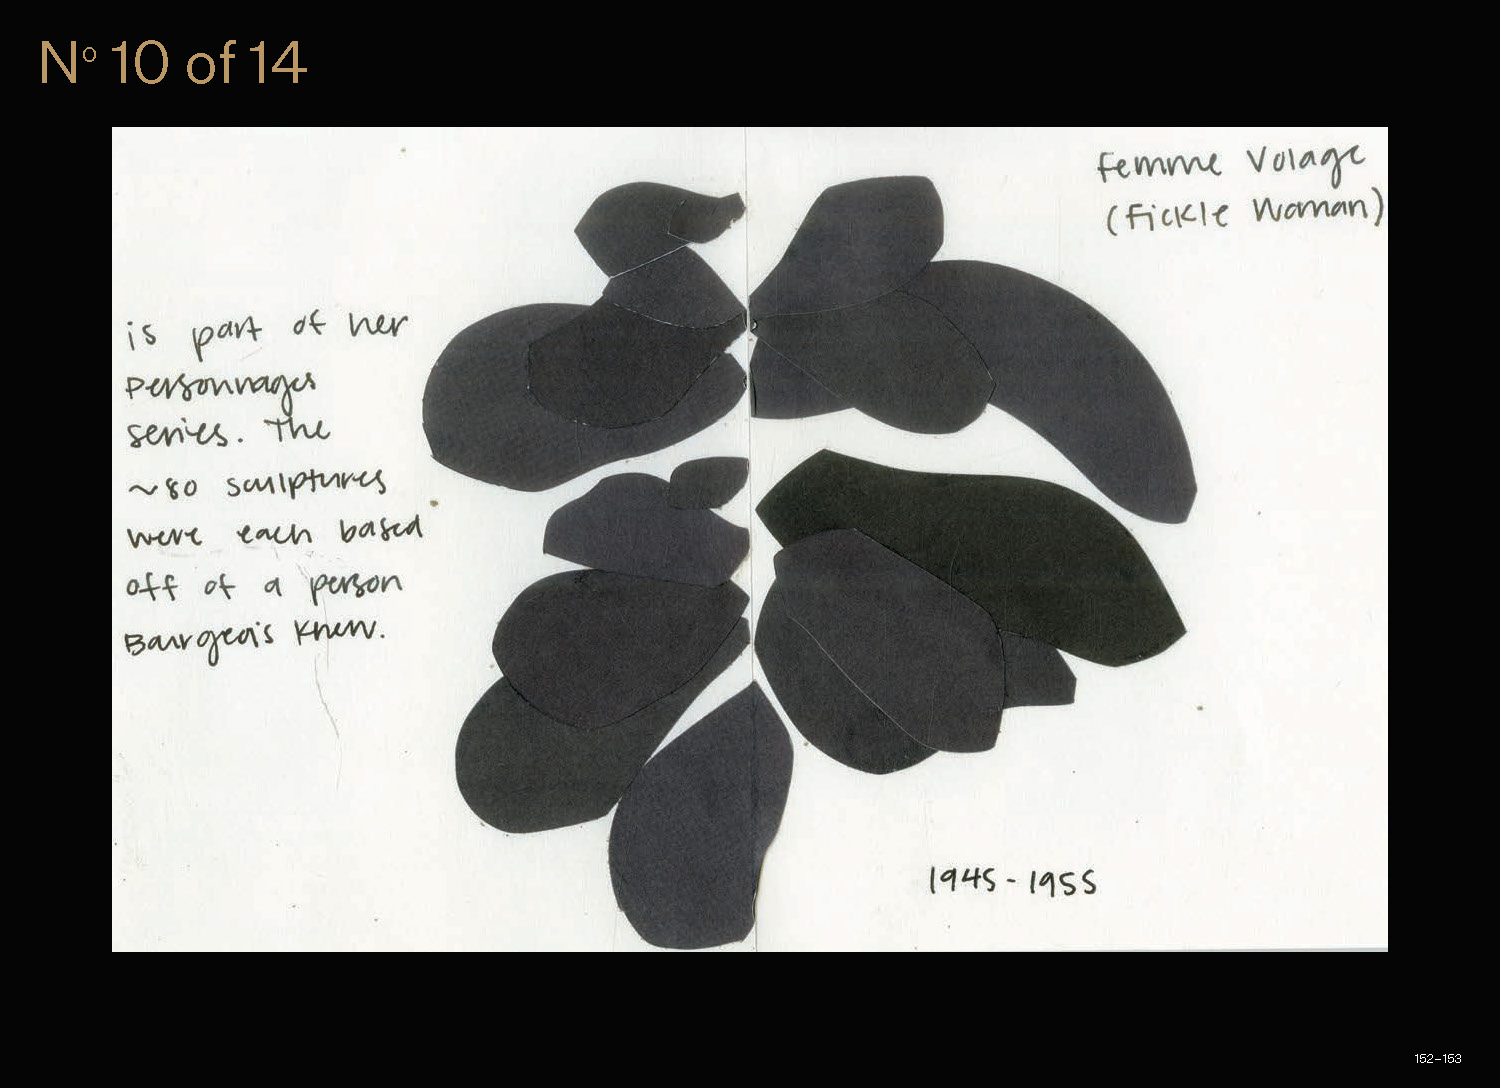 Nº 10 of 14
Femme Volage
(Fickle Woman)
is part of her
Personnages
series. The
~80 sculptures
were each based
off of a person
Bourgeois knew.
1945-1955
152–153